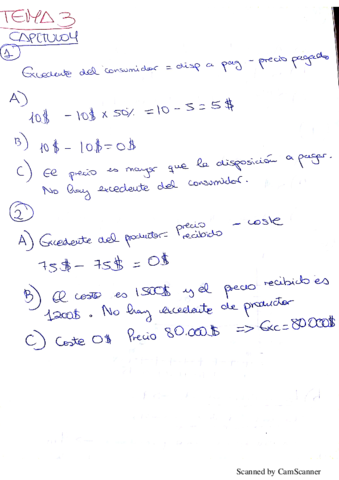 TEMA 3
CAPITULO 4
1
Excedente del consumidor = disp a pag - precio pagado
A)
10$ - 10$ x 50% = 10 - 5 = 5$
B) 10$ - 10$ = 0$
C) El precio es mayor que la disposición a pagar.
No hay excedente del consumidor.
2
A) Excedente del productor = precio recibido - coste
75$ - 75$ = 0$
B) El costo es 1500$ y el precio recibido es
1200$. No hay excedente de productor
C) Coste 0$ Precio 80.000$ => Exc = 80.000$
Scanned by CamScanner